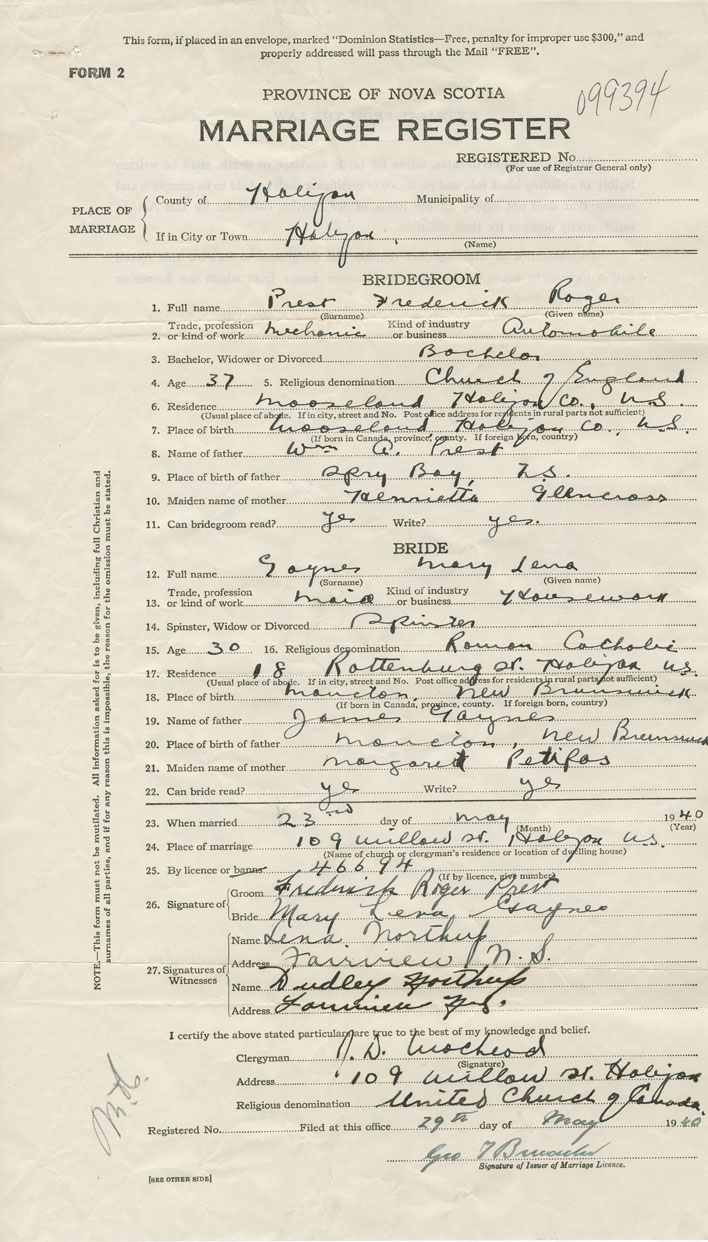 This form, if placed in an envelope, marked "Dominion Statistics—Free, penalty for improper use $300," and
properly addressed will pass through the Mail "FREE".
FORM 2
PROVINCE OF NOVA SCOTIA
099394
MARRIAGE REGISTER
REGISTERED No.
(For use of Registrar General only)
PLACE OF MARRIAGE
County of Halifax Municipality of
If in City or Town Halifax,
(Name)
BRIDEGROOM
1. Full name Prest Frederick Roger
(Surname) (Given name)
2. Trade, profession or kind of work Mechanic Kind of industry or business Automobile
3. Bachelor, Widower or Divorced Bachelor
4. Age 37 5. Religious denomination Church of England
6. Residence Mooseland Halifax Co., N.S.
(Usual place of abode. If in city, street and No. Post office address for residents in rural parts not sufficient)
7. Place of birth Mooseland Halifax Co., N.S.
(If born in Canada, province, county. If foreign born, country)
8. Name of father Wm A. Prest
9. Place of birth of father Spry Bay, N.S.
10. Maiden name of mother Henrietta Glencross
11. Can bridegroom read? yes Write? yes.
BRIDE
12. Full name Gaynes Mary Lena
(Surname) (Given name)
13. Trade, profession or kind of work Maid Kind of industry or business Housework
14. Spinster, Widow or Divorced Spinster
15. Age 30 16. Religious denomination Roman Catholic
17. Residence 18 Rottenburg St. Halifax N.S.
(Usual place of abode. If in city, street and No. Post office address for residents in rural parts not sufficient)
18. Place of birth Moncton, New Brunswick
(If born in Canada, province, county. If foreign born, country)
19. Name of father James Gaynes
20. Place of birth of father Moncton, New Brunswick
21. Maiden name of mother Margaret Petipas
22. Can bride read? yes Write? yes
23. When married 23rd day of May 1940
(Month) (Year)
24. Place of marriage 109 Willow St. Halifax N.S.
(Name of church or clergyman's residence or location of dwelling house)
25. By licence or banns 46694
(If by licence, give number)
26. Signature of
Groom Frederick Roger Prest
Bride Mary Lena Gaynes
27. Signatures of Witnesses
Name Lena Northup
Address Fairview N.S.
Name Dudley Northup
Address Fairview N.S.
I certify the above stated particulars are true to the best of my knowledge and belief.
Clergyman J. D. MacLeod
(Signature)
Address 109 Willow St. Halifax
Religious denomination United Church of Canada.
Registered No. Filed at this office 29th day of May 1940
Geo T
Signature of Issuer of Marriage Licence.
[SEE OTHER SIDE]
NOTE.—This form must not be mutilated. All information asked for is to be given, including full Christian and
surnames of all parties, and if for any reason this is impossible, the reason for the omission must be stated.